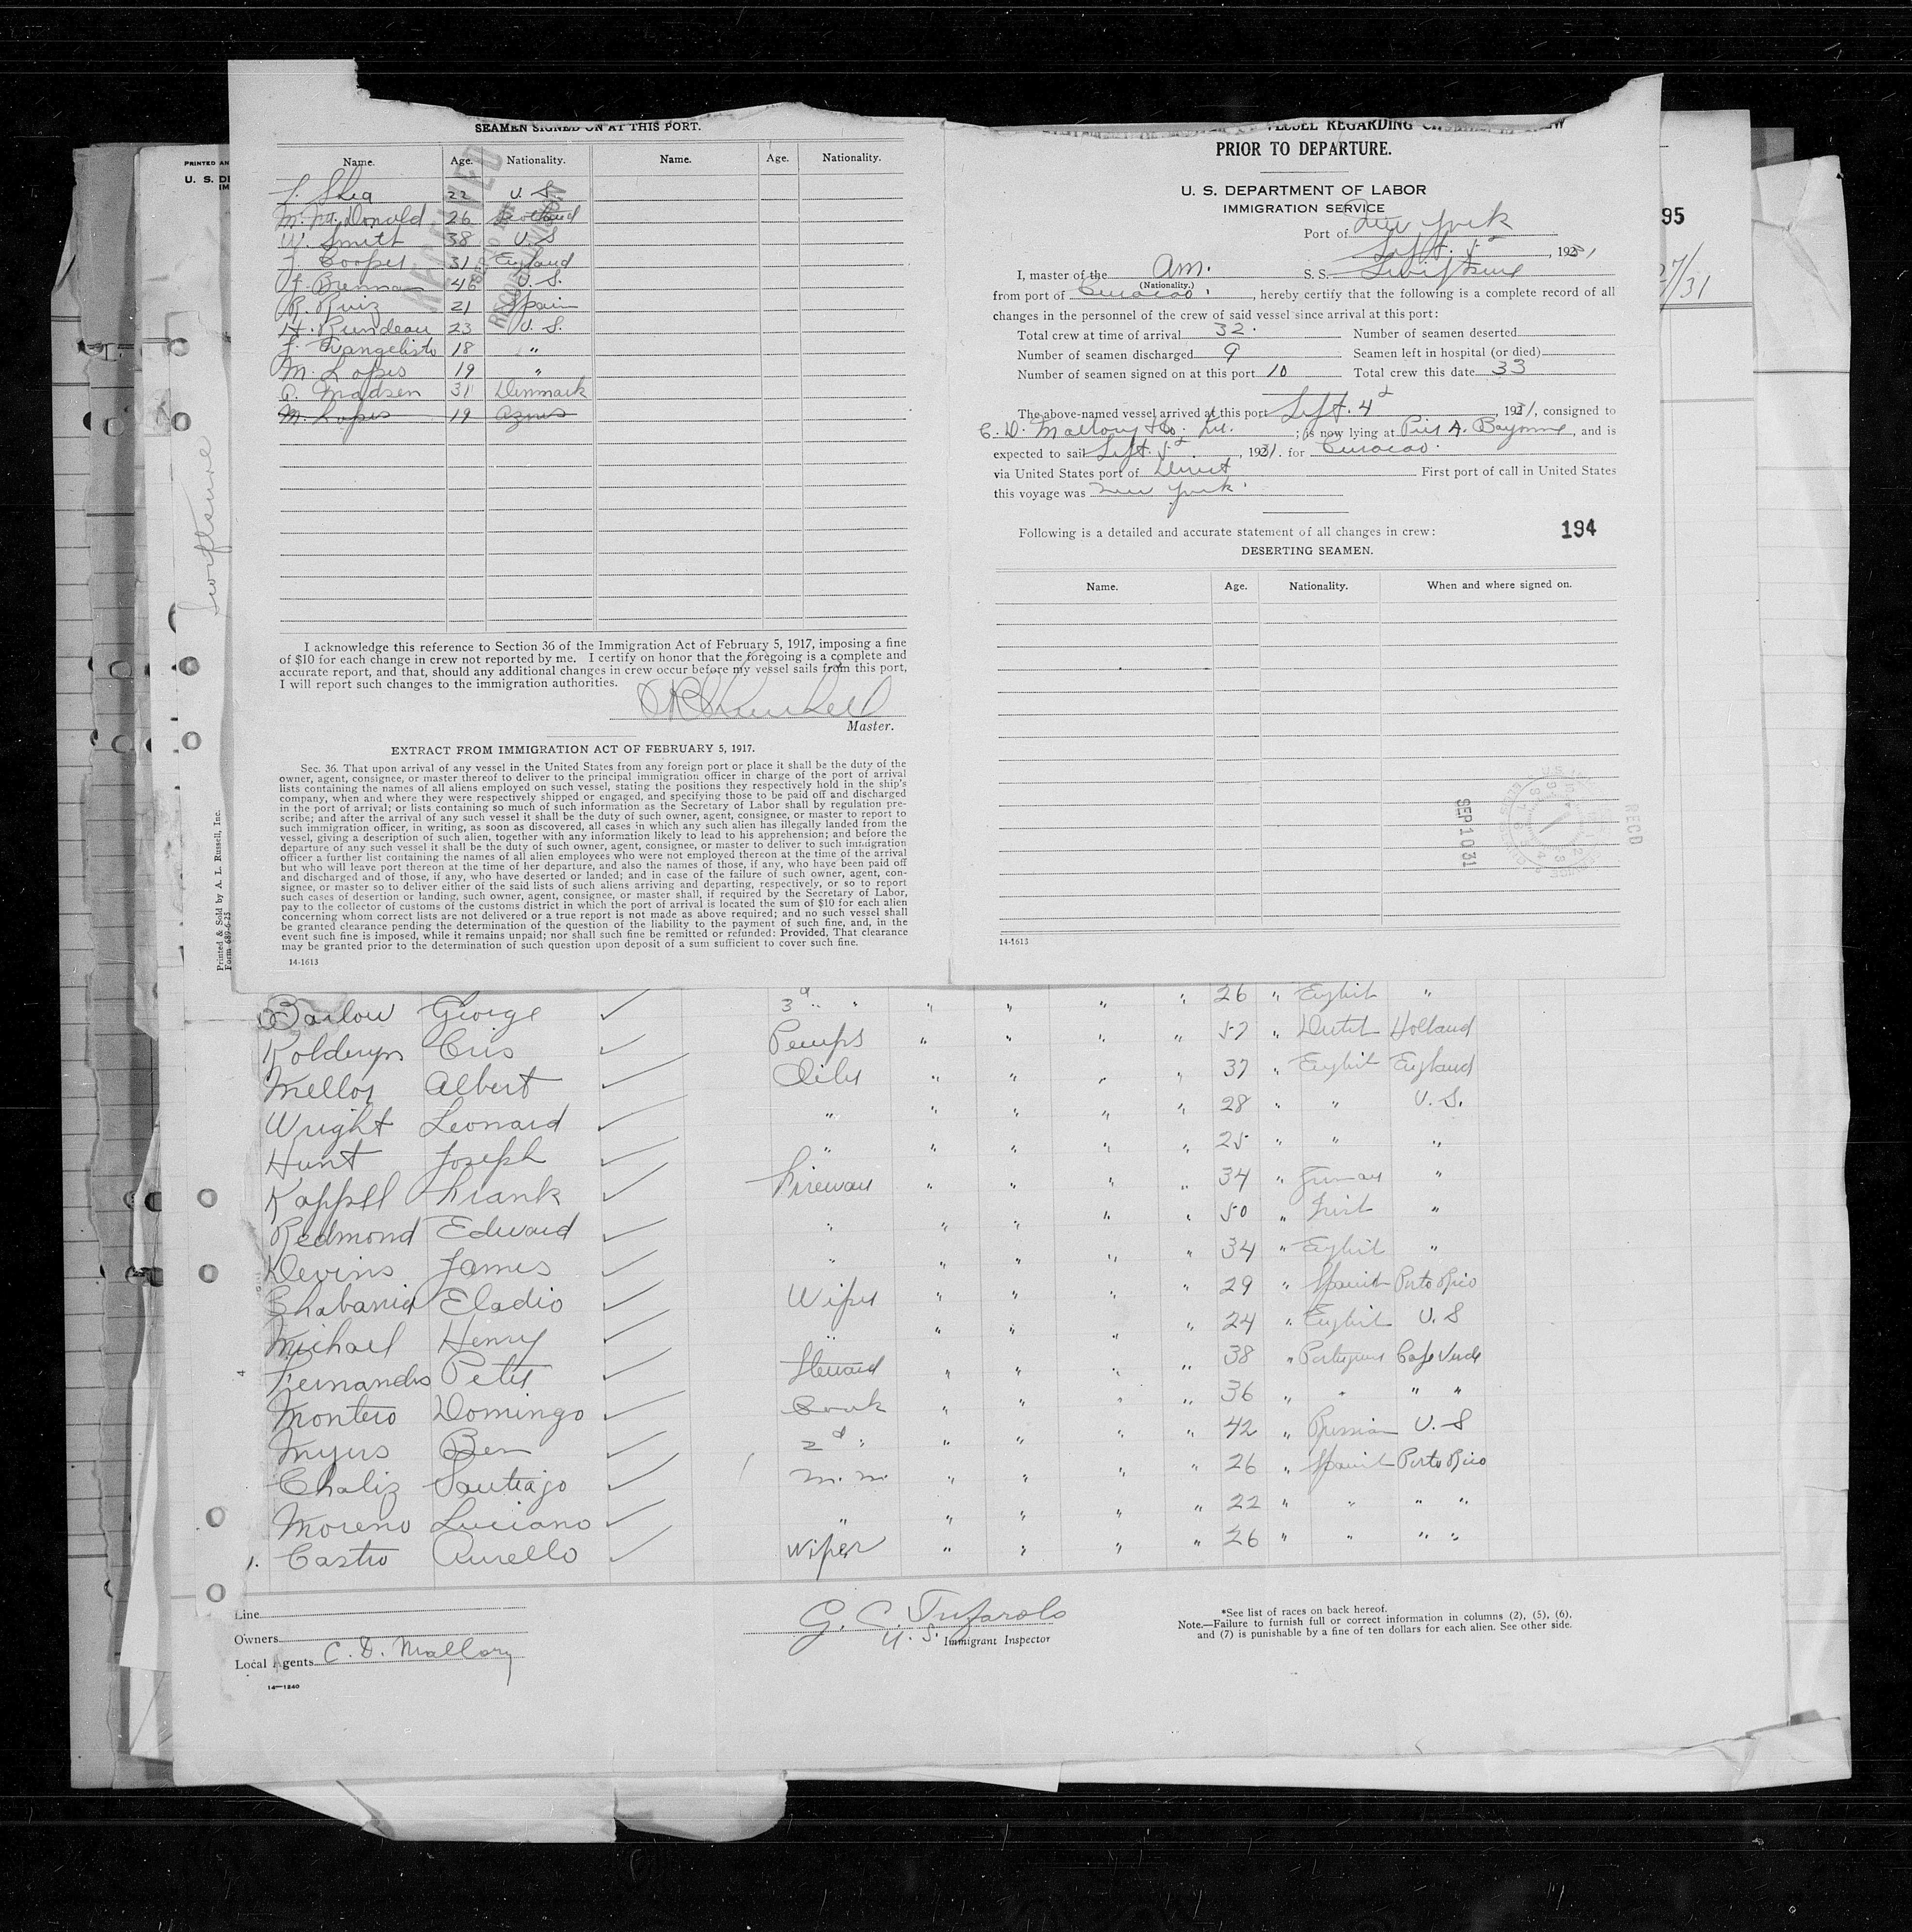 SEAMEN SIGNED ON AT THIS PORT.
Name. Age. Nationality. Name. Age. Nationality.
J. Shea 22 U. S.
M. Mc. Donald 26 Scotland
W. Smith 38 U. S
J. Cooper 31 England
J. Brennan 46 U. S.
R. Ruiz 21 Spain
H. Rundeau 23 U. S.
J. Evangelisto 18 "
M. Lopes 19 "
P. Madsen 31 Denmark
M. Lopes 19
I acknowledge this reference to Section 36 of the Immigration Act of February 5, 1917, imposing a fine
of $10 for each change in crew not reported by me. I certify on honor that the foregoing is a complete and
accurate report, and that, should any additional changes in crew occur before my vessel sails from this port,
I will report such changes to the immigration authorities.
Master.
EXTRACT FROM IMMIGRATION ACT OF FEBRUARY 5, 1917.
Sec. 36. That upon arrival of any vessel in the United States from any foreign port or place it shall be the duty of the
owner, agent, consignee, or master thereof to deliver to the principal immigration officer in charge of the port of arrival
lists containing the names of all aliens employed on such vessel, stating the positions they respectively hold in the ship's
company, when and where they were respectively shipped or engaged, and specifying those to be paid off and discharged
in the port of arrival; or lists containing so much of such information as the Secretary of Labor shall by regulation pre-
scribe; and after the arrival of any such vessel it shall be the duty of such owner, agent, consignee, or master to report to
such immigration officer, in writing, as soon as discovered, all cases in which any such alien has illegally landed from the
vessel, giving a description of such alien, together with any information likely to lead to his apprehension; and before the
departure of any such vessel it shall be the duty of such owner, agent, consignee, or master to deliver to such immigration
officer a further list containing the names of all alien employees who were not employed thereon at the time of the arrival
but who will leave port thereon at the time of her departure, and also the names of those, if any, who have been paid off
and discharged and of those, if any, who have deserted or landed; and in case of the failure of such owner, agent, con-
signee, or master so to deliver either of the said lists of such aliens arriving and departing, respectively, or so to report
such cases of desertion or landing, such owner, agent, consignee, or master shall, if required by the Secretary of Labor,
pay to the collector of customs of the customs district in which the port of arrival is located the sum of $10 for each alien
concerning whom correct lists are not delivered or a true report is not made as above required; and no such vessel shall
be granted clearance pending the determination of the question of the liability to the payment of such fine, and, in the
event such fine is imposed, while it remains unpaid; nor shall such fine be remitted or refunded: Provided, That clearance
may be granted prior to the determination of such question upon deposit of a sum sufficient to cover such fine.
14-1613
VESSEL REGARDING
PRIOR TO DEPARTURE.
U. S. DEPARTMENT OF LABOR
IMMIGRATION SERVICE
Port of New York
Sept. 5th, 1931
I, master of the Am. S. S. Swiftsure
(Nationality.)
from port of Curacao, hereby certify that the following is a complete record of all
changes in the personnel of the crew of said vessel since arrival at this port:
Total crew at time of arrival 32. Number of seamen deserted
Number of seamen discharged 9 Seamen left in hospital (or died)
Number of seamen signed on at this port 10 Total crew this date 33
The above-named vessel arrived at this port Sept. 4th, 1931, consigned to
C. D. Mallory & Co. ; is now lying at Pier A. Bayonne, and is
expected to sail Sept. 5th, 1931. for Curacao.
via United States port of Direct First port of call in United States
this voyage was New York.
Following is a detailed and accurate statement of all changes in crew:
194
DESERTING SEAMEN.
Name. Age. Nationality. When and where signed on.
SEP 10 31
RECD
14-1613
95
27/31
PRINTED AN
U. S. DE
IM
Swiftsure
Printed & Sold by A. L. Russell, Inc.
Form 689-6-25
Barlow George ✓ 3d " " " " " " 26 " English "
Kolderup Cris ✓ Pumps " " " " 57 " Dutch Holland
Mellor Albert ✓ Oiler " " " " 37 " English England
Wright Leonard ✓ " " " " " 28 " " U. S.
Hunt Joseph ✓ " " " " " 25 " " "
Kappel Frank ✓ Fireman " " " " 34 " German "
Redmond Edward ✓ " " " " " 50 " Irish "
Devins James ✓ " " " " " 34 " English "
Chabania Eladio ✓ Wiper " " " " 29 " Spanish Porto Rico
Michael Henry ✓ " " " " " 24 " English U. S
4 Fernandes Peter ✓ Steward " " " " 38 " Portuguese Cape Verde
Montero Domingo ✓ Cook " " " " 36 " " " "
Myers Ben ✓ 2d " " " " " 42 " Russian U. S
Chaliz Santiago ✓ M. M. " " " " 26 " Spanish Porto Rico
Moreno Luciano ✓ " " " " " 22 " " " "
1. Castro Aurello ✓ Wiper " " " " 26 " " " "
Line
Owners
Local Agents C. D. Mallory
14—1240
U. S. Immigrant Inspector
*See list of races on back hereof.
Note.—Failure to furnish full or correct information in columns (2), (5), (6),
and (7) is punishable by a fine of ten dollars for each alien. See other side.